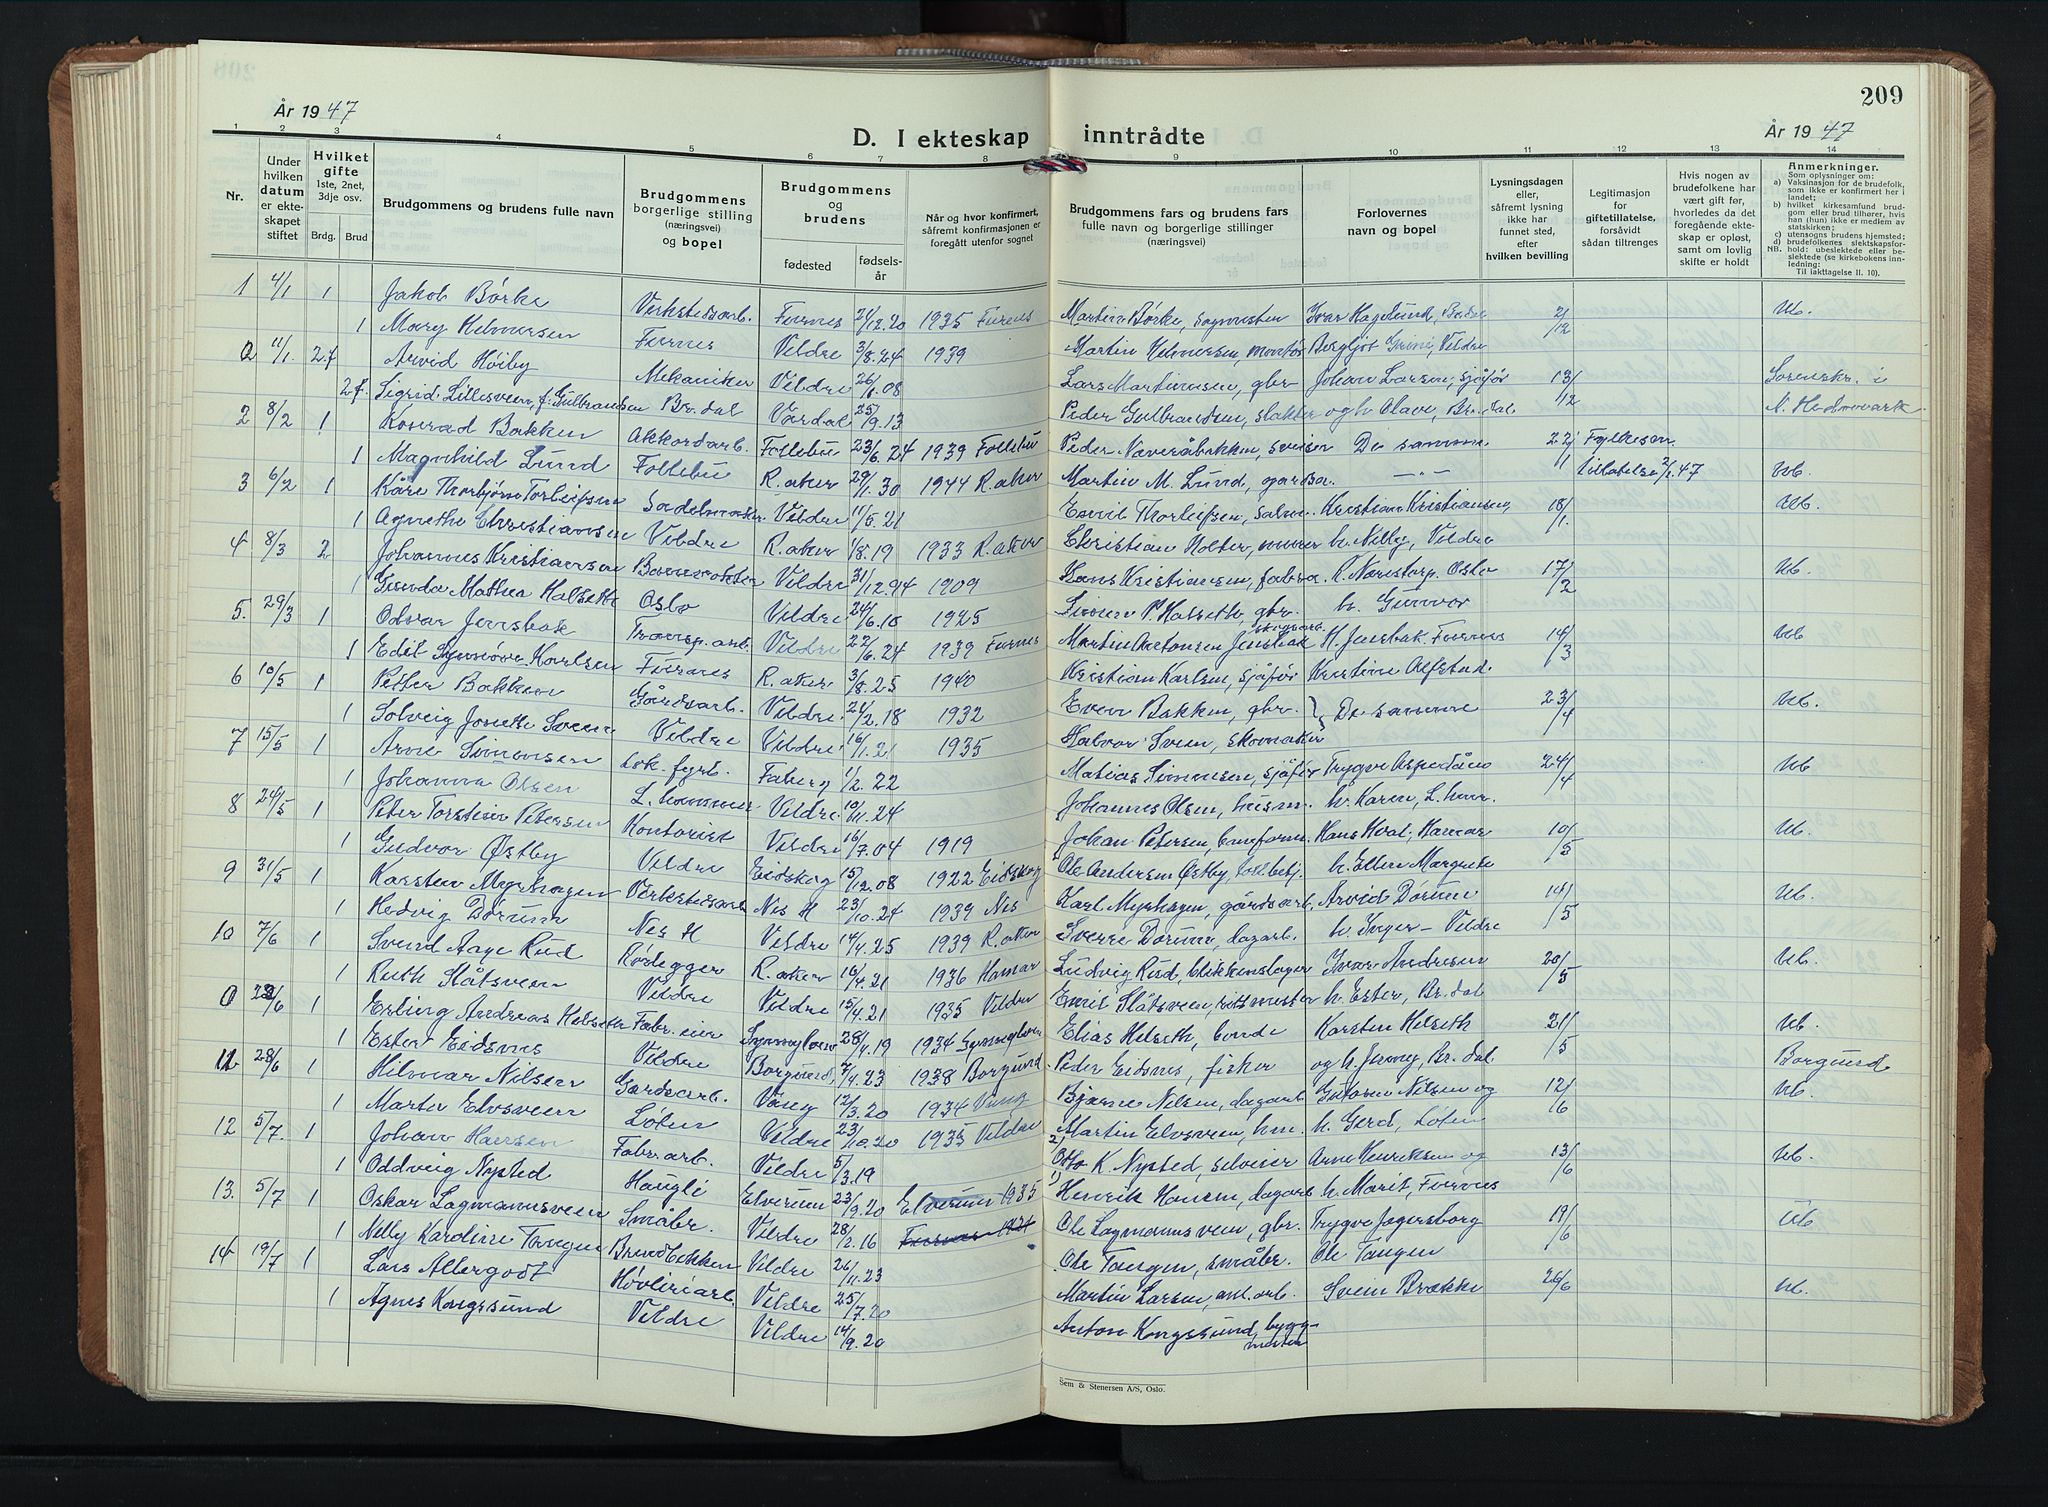 209
År 1947
År 1947
D. I ekteskap inntrådte
1 2 3 4 5 6 7 8 9 10 11 12 13 14
Nr.
Under hvilken datum er ekteskapet stiftet
Hvilket gifte 1ste, 2net, 3dje osv.
Brdg. Brud
Brudgommens og brudens fulle navn
Brudgommens borgerlige stilling (næringsvei) og bopel
Brudgommens og brudens
fødested
fødselsår
Når og hvor konfirmert, såfremt konfirmasjonen er foregått utenfor sognet
Brudgommens fars og brudens fars fulle navn og borgerlige stillinger (næringsvei)
Forlovernes navn og bopel
Lysningsdagen eller, såfremt lysning ikke har funnet sted, efter hvilken bevilling
Legitimasjon for giftetillatelse, forsåvidt sådan tiltrenges
Hvis nogen av brudefolkene har vært gift før, hvorledes da det foregående ekteskap er opløst, samt om lovlig skifte er holdt
Anmerkninger.
Som oplysninger om:
a) Vaksinasjon for de brudefolk, som ikke er konfirmert her i landet;
b) hvilket kirkesamfund brudgom eller brud tilhører, hvis han (hun) ikke er medlem av statskirken;
c) utensogns brudens hjemsted;
d) brudefolkenes slektskapsforhold: ubeslektede eller beslektede (se kirkebokens innledning:
NB.
Til iakttagelse II. 10).
1 4/1 1 Jakob Børke Verkstedsarb. Furnes 24/12.20 1935 Furnes Martin Børke, Ivar Hagelund, 2/12 Ub.
1 Mary Helmersen Furnes Vildre 3/8.24 1939 Martin Helmersen, montør Bergljot Vildre
0 11/1 2.f Arvid Høiby Mekaniker Vildre 26/6.08 Lars Martinsen, gbr Johan Larsen, sjåfør 13/12 Sorenskr. i
2.f. Sigrid Lillesveen, f. Gulbrandsen Br.dal Vardal 25/9.13 Peder Gulbrandsen, slakter og h. Olave, Br.dal N. Hedmark
2 8/2 1 Konrad Bakken Akkordarb. Follebu 23/6.24 1939 Follebu Peder Næveråbakken, De samme 22/1 Fylkesm.
1 Magnhild Lund Follebu R.aker 29/1.30 1944 R.aker Martin M. Lund, gardbr. —"— tillatelse 2/1.47 Ub
3 6/2 1 Kåre Thorbjørn Torleifsen Sadelmaker Vildre 11/5.21 Emil Thorleifsen, Kristian Kristiansen, 18/1. Ub.
1 Agnethe Christiansen Vildre R.aker 1/8.19 1933 R.aker Christian Holter, murer h. Nelly, Vildre
4 8/3 2 Johannes Kristiansen Vildre 31/12.94 1909 Hans Kristiansen, R. Nærstorp. Oslo 17/2 Ub.
1 Gunda Mathea Halseth Oslo Vildre 24/6.10 1925 Simen P. Halseth, gbr. h. Gunvor
5. 29/3 1 Odvar Jensbak Transp. arb. Vildre 22/6.24 1939 Furnes Martin Antonsen Jensbak skogsarb. H. Jensbak Furnes 14/3 Ub
1 Edit Synnøve Karlsen Furnes R.aker 3/8.25 1940 Kristian Karlsen, sjåfør Kristine Alfstad.
6 10/5 1 Petter Bakken Gårdsarb. Vildre 24/2.18 1932 Even Bakken, gbr. } De samme 23/4 Ub.
1 Solveig Josette Sveen Vildre Vildre 16/1.21 1935 Halvor Sveen, skomaker
7 15/5 1 Arne Simensen Lok.fyrb. Faberg 1/2.22 Matias Simensen, sjåfør Trygve 24/4 Ub
1 Johanna Olsen L.hammer Vildre 10/11.24 Johannes Olsen, husm. h. Karen, L.hmr.
8 24/5 1 Peter Torstein Petersen Kontorist Vildre 16/7.04 1919 Johan Petersen, baneform. Hans Hval, Hamar 10/5 Ub.
1 Gudvor Østby Vildre Eidskog 15/12.08 1922 Eidskog Ole Andersen Østby, h. Ellen Margrete
9 31/5 1 Karsten Myrhagen Verkstedsarb Nes H 23/10.24 1939 Nes Karl Myrhagen, gårdsarb. Arvid Dørum 14/5 Ub.
1 Hedvig Dørum Nes H Vildre 14/4.25 1939 R.aker Sverre Dørum, dagarb. h. Inger – Vildre
10 7/6 1 Svend Aage Rud Rørlegger R.aker 16/4.21 1936 Hamar Ludvig Rud, blikkenslager Ivar Andresen 20/5 Ub.
1 Ruth Slåtsveen Vildre Vildre 15/4.21 1935 Vildre Emil Slåtsveen, h. Ester, Br.dal
0 22/6 1 Erling Andreas Helseth Fabr.eier 28/4.19 1934 Elias Helseth, bonde Karsten Helseth 21/5 Ub.
1 Ester Eidsnes Vildre Borgund, 7/4.23 1938 Borgund Peder Eidsnes, fisker og h. Jenny, Br.dal. Borgund
11 28/6 1 Hilmar Nilsen Gardsarb. Vang 12/3.20 1934 Vang Bjarne Nilsen, dagarb Nilsen og 12/6 Ub.
1 Marta Elvsveen Løten Vildre 23/10.20 1935 Vildre Martin Elvsveen, hm. h. Gerd, Løten
12 5/7. 1 Johan Hansen Fabr.arb. Vildre 5/3.19 2) Otto K. Nysted, Arne Henriksen og 13/6 Ub.
1 Oddveig Nysted Haugli Elverum 23/9.20 Elverum 1935 1) Henrik Hansen, dagarb h. Marit, Furnes
13. 5/7 1 Oskar Lagmannsveen Småbr. Vildre 28/2.16 Furnes 1931 Ole Lagmannsveen, gbr. Trygve Jagersborg 19/6 Ub
1 Nelly Karoline Tangen Vildre 26/11.23 Ole Tangen, småbr. Ole Tangen
14 19/7 1 Lars Allergodt Høvleriarb. Vildre 25/7.20 Martin Larsen, anl.arb. Svein Brække 26/6 Ub.
1 Agnes Kongssund Vildre Vildre 14/9.20 Anton Kongssund, byggmester
Sem & Stenersen A/S, Oslo.